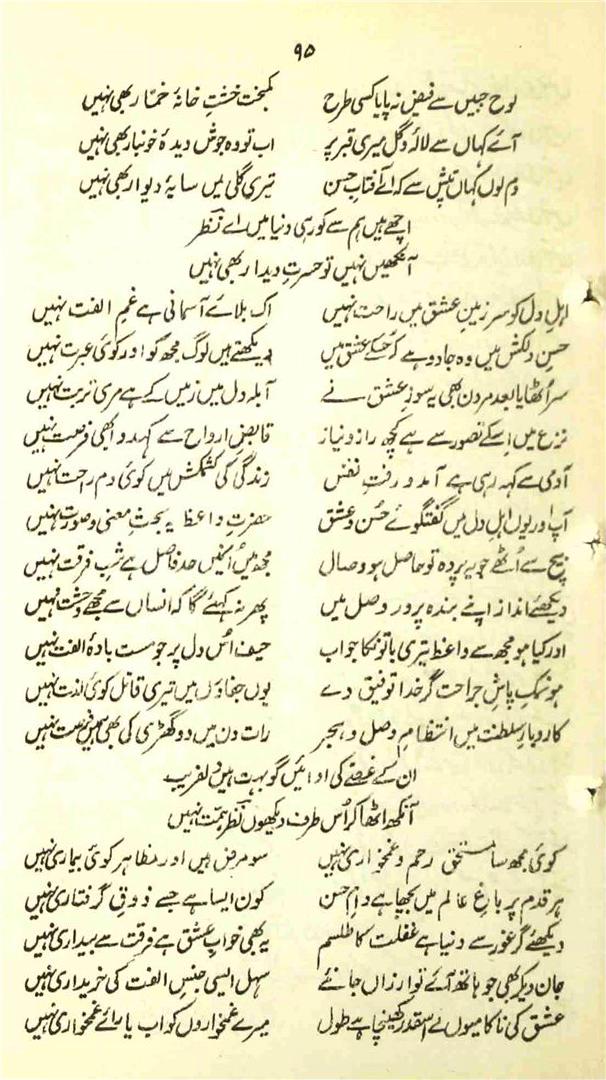 ۹۵
لوح جبیں سے فیض نہ پایا کسی طرح کمبخت خشتِ خانۂ خمّار بھی نہیں
آئے کہاں سے لالہ و گل میری قبر پر اب تو وہ جوش دیدۂ خونبار بھی نہیں
دم لوں کہاں تپش سے کہ اے آفتابِ حسن تیری گلی میں سایۂ دیوار بھی نہیں
اچھے ہیں ہم سے کور ہی دنیا میں اے نظر
آنکھیں نہیں تو حسرتِ دیدار بھی نہیں
اہلِ دل کو سرزمینِ عشق میں راحت نہیں اک بلائے آسمانی ہے غمِ الفت نہیں
حسن دلکش میں وہ جادو ہے کہ جسکے عشق میں دیکھتے ہیں لوگ مجھ کو اور کوئی عبرت نہیں
سر اُٹھایا بعد مردن بھی یہ سوزِ عشق نے آبلہ دل میں زمیں کے ہے مری تربت نہیں
نزع میں اسکے تصور سے ہے کچھ راز و نیاز قابضِ ارواح سے کہدو ابھی فرصت نہیں
آدمی سے کہہ رہی ہے آمد و رفتِ نفس زندگی کی کشمکش میں کوئی دم راحت نہیں
آپ اور یوں اہلِ دل میں گفتگوئے حُسن و عشق حضرتِ واعظ یہ بحثِ معنی و صورت نہیں
بیچ سے اُٹھے جو یہ پردہ تو حاصل ہو وصال مجھ میں اُنمیں حد فاصل ہے شبِ فرقت نہیں
دیکھئے انداز اپنے بندہ پرور وصل میں پھر نہ کہئے گا کہ انساں سے مجھے وحشت نہیں
اور کیا ہو مجھ سے واعظ تیری باتونکا جواب حیف اُس دل پر جو مست بادۂ الفت نہیں
ہو نمک پاشِ جراحت گر خدا توفیق دے یوں جفاؤں میں تیری قاتل کوئی لذت نہیں
کاروبارِ سلطنت میں انتظامِ وصل و ہجر رات دن میں دو گھڑی کی بھی ہمیں فرصت نہیں
ان کے غصے کی ادائیں گو بہت ہیں دلفریب
آنکھ اٹھا کر اُس طرف دیکھوں نظر ہمت نہیں
کوئی مجھ سا مستحقِ رحم و غمخواری نہیں سو مرض ہیں اور مظاہر کوئی بیماری نہیں
ہر قدم پر باغِ عالم میں بچھا ہے دامِ حسن کون ایسا ہے جسے ذوقِ گرفتاری نہیں
دیکھئے گر غور سے دنیا ہے غفلت کا طلسم یہ بھی خوابِ عشق ہے فرقت سے بیداری نہیں
جان دیکر بھی جو ہاتھ آئے تو ارزاں جانئے سہل ایسی جنسِ الفت کی خریداری نہیں
عشق کی ناکامیوں نے اسقدر کھینچا ہے طول میرے غمخواروں کو اب یارائے غمخواری نہیں